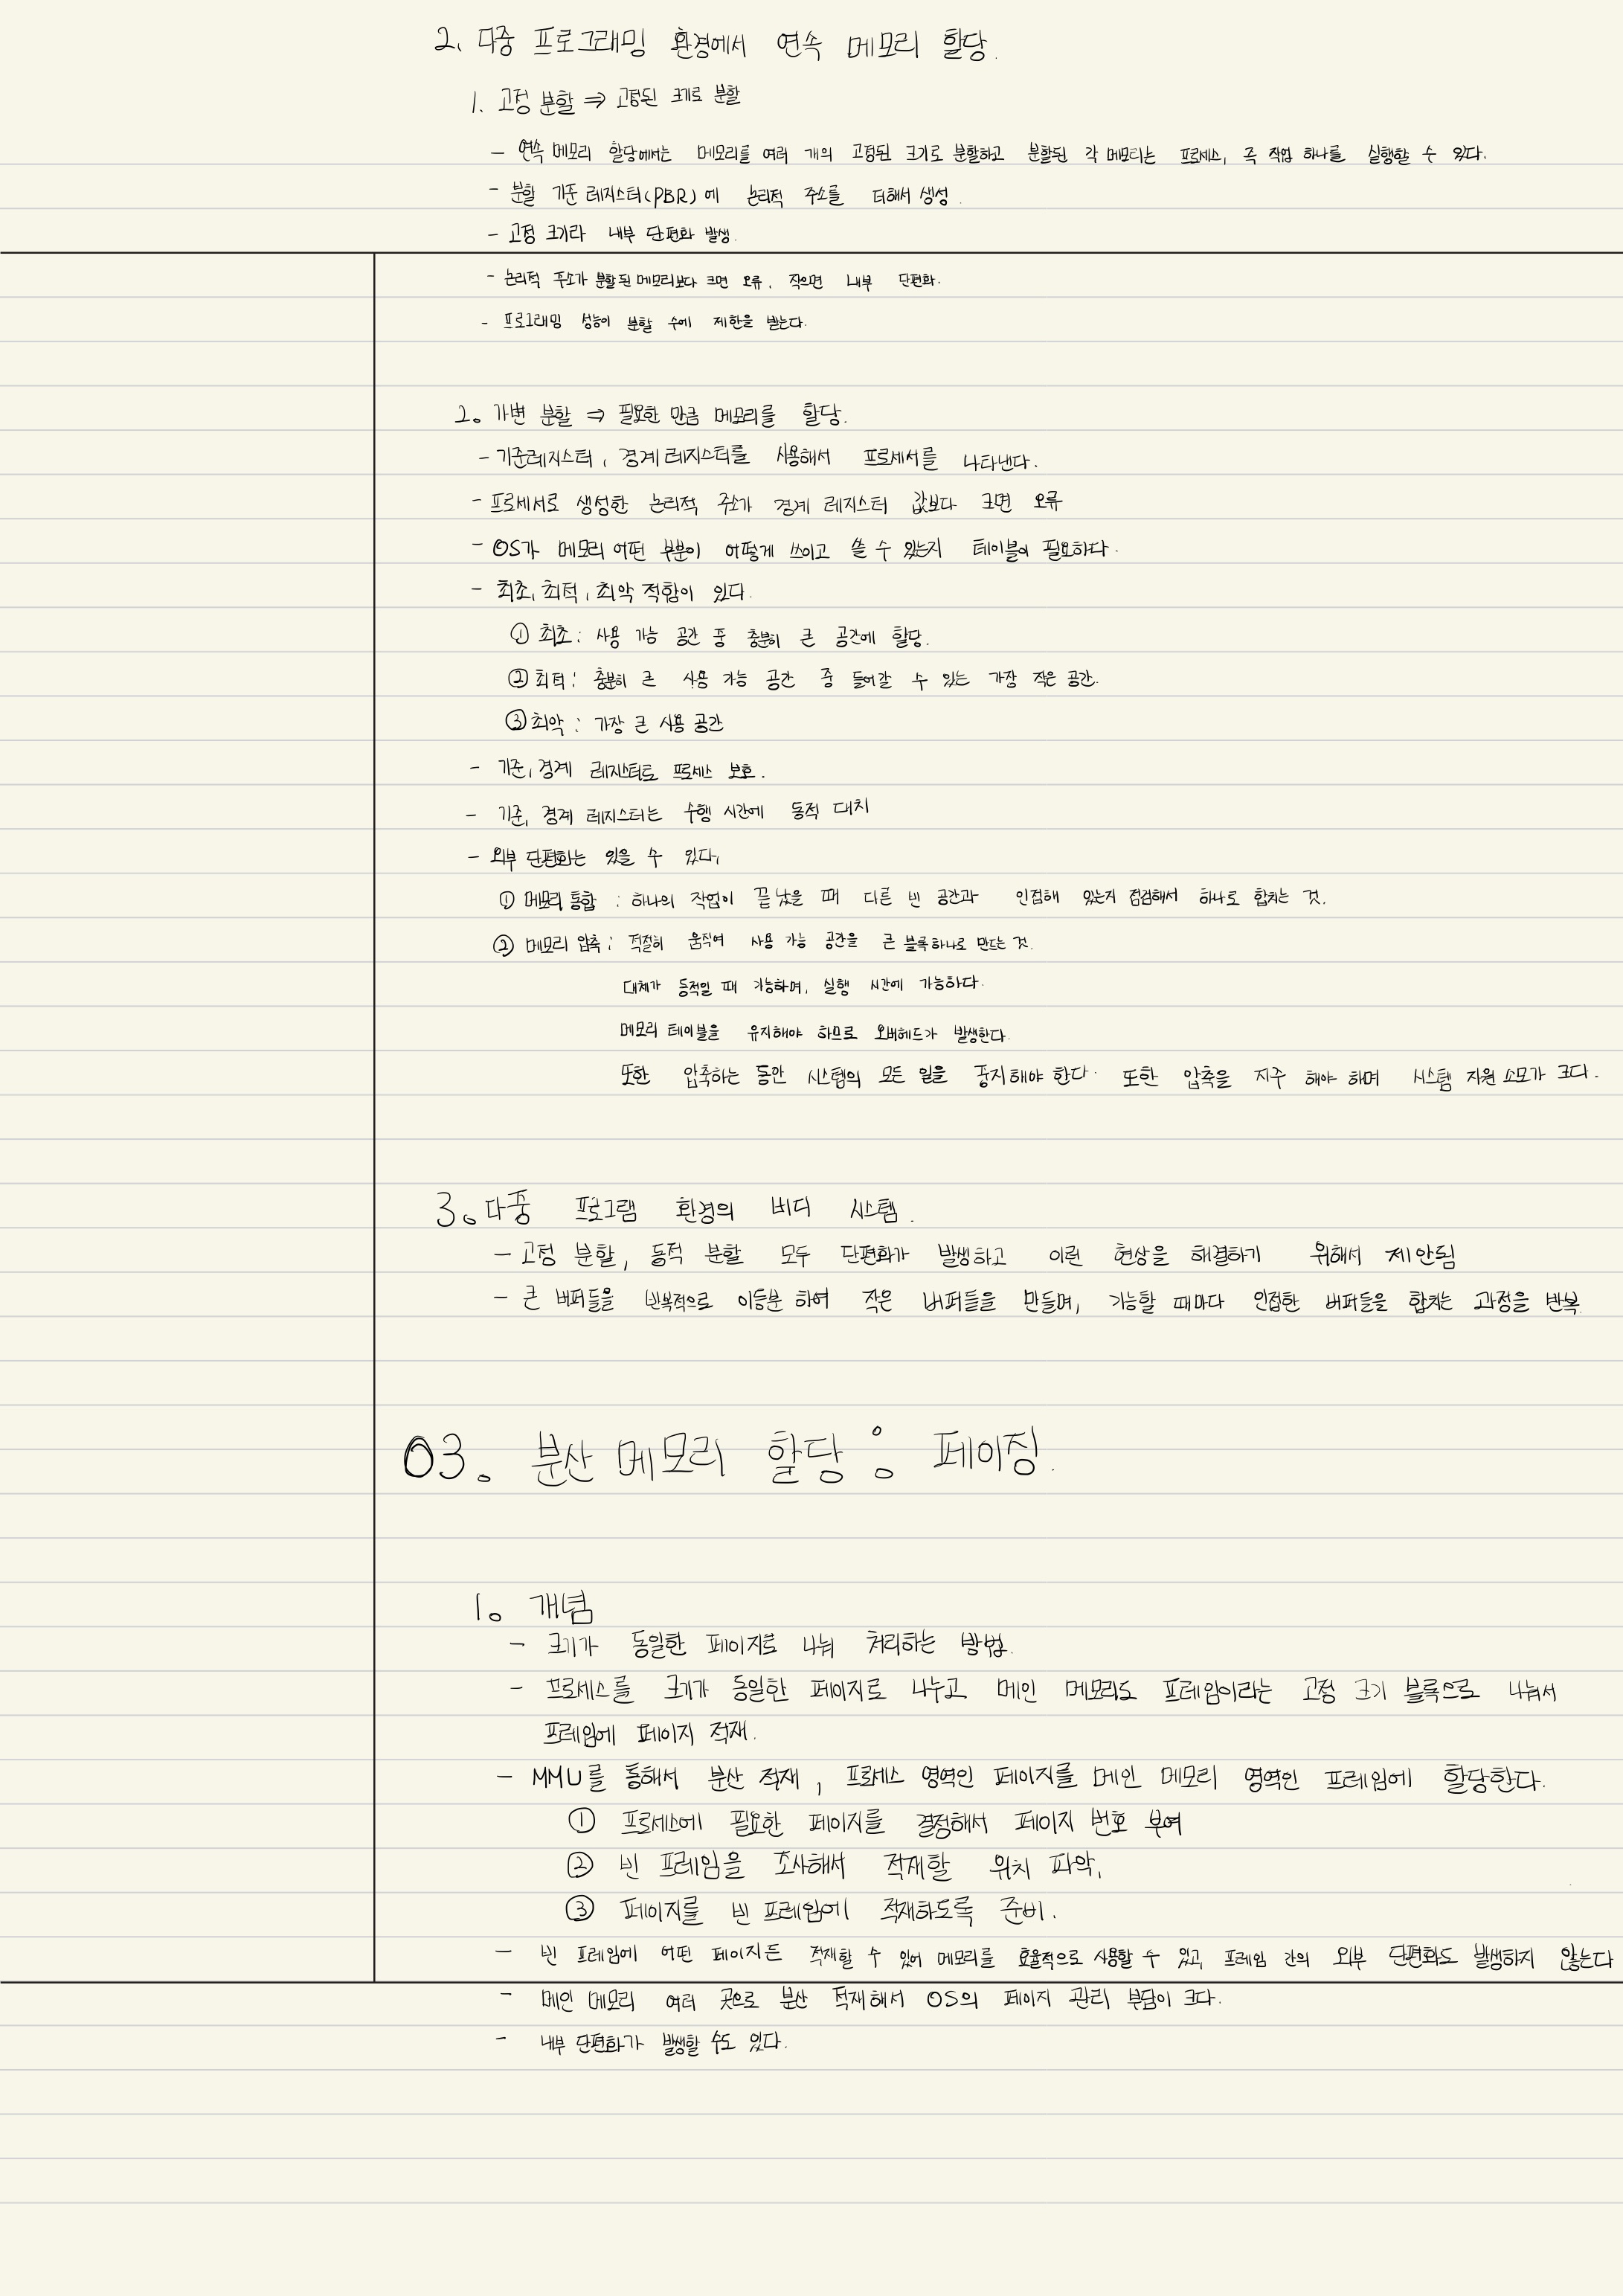 2. 다중 프로그래밍 환경에서 연속 메모리 할당.
1. 고정 분할 ⇒ 고정된 크기로 분할
- 연속 메모리 할당에서는 메모리를 여러 개의 고정된 크기로 분할하고 분할된 각 메모리는 프로세스, 즉 작업 하나를 실행할 수 있다.
- 분할 기준 레지스터(PBR)에 논리적 주소를 더해서 생성.
- 고정 크기라 내부 단편화 발생.
- 논리적 주소가 분할된 메모리보다 크면 오류, 작으면 내부 단편화.
- 프로그래밍 성능이 분할 수에 제한을 받는다.
2. 가변 분할 ⇒ 필요한 만큼 메모리를 할당.
- 기준레지스터, 경계 레지스터를 사용해서 프로세서를 나타낸다.
- 프로세서로 생성한 논리적 주소가 경계 레지스터 값보다 크면 오류
- OS가 메모리 어떤 부분이 어떻게 쓰이고 쓸 수 있는지 테이블이 필요하다.
- 최초, 최적, 최악 적합이 있다.
① 최초: 사용 가능 공간 중 충분히 큰 공간에 할당.
② 최적: 충분히 큰 사용 가능 공간 중 들어갈 수 있는 가장 작은 공간.
③ 최악: 가장 큰 사용 공간
- 기준, 경계 레지스터로 프로세스 보호.
- 기준, 경계 레지스터는 수행 시간에 동적 대치
- 외부 단편화는 있을 수 있다.
① 메모리 통합 : 하나의 작업이 끝났을 때 다른 빈 공간과 인접해 있는지 점검해서 하나로 합치는 것.
② 메모리 압축 : 적절히 움직여 사용 가능 공간을 큰 블록하나로 만드는 것.
대체가 동적일 때 가능하며, 실행 시간에 가능하다.
메모리 테이블을 유지해야 하므로 오버헤드가 발생한다.
또한 압축하는 동안 시스템의 모든 일을 중지해야 한다. 또한 압축을 자주 해야 하며 시스템 자원 소모가 크다.
3. 다중 프로그램 환경의 버디 시스템.
- 고정 분할, 동적 분할 모두 단편화가 발생하고 이런 현상을 해결하기 위해서 제안됨
- 큰 버퍼들을 반복적으로 이등분 하여 작은 버퍼들을 만들며, 가능할 때마다 인접한 버퍼들을 합치는 과정을 반복
03. 분산 메모리 할당 : 페이징.
1. 개념
- 크기가 동일한 페이지로 나눠 처리하는 방법.
- 프로세스를 크기가 동일한 페이지로 나누고 메인 메모리도 프레임이라는 고정 크기 블록으로 나눠서
프레임에 페이지 적재.
- MMU를 통해서 분산 적재, 프로세스 영역인 페이지를 메인 메모리 영역인 프레임에 할당한다.
① 프로세스에 필요한 페이지를 결정해서 페이지 번호 부여
② 빈 프레임을 조사해서 적재할 위치 파악.
③ 페이지를 빈 프레임에 적재하도록 준비.
- 빈 프레임에 어떤 페이지든 적재할 수 있어 메모리를 효율적으로 사용할 수 있고, 프레임 간의 외부 단편화도 발생하지 않는다
- 메인 메모리 여러 곳으로 분산 적재해서 OS의 페이지 관리 부담이 크다.
- 내부 단편화가 발생할 수도 있다.